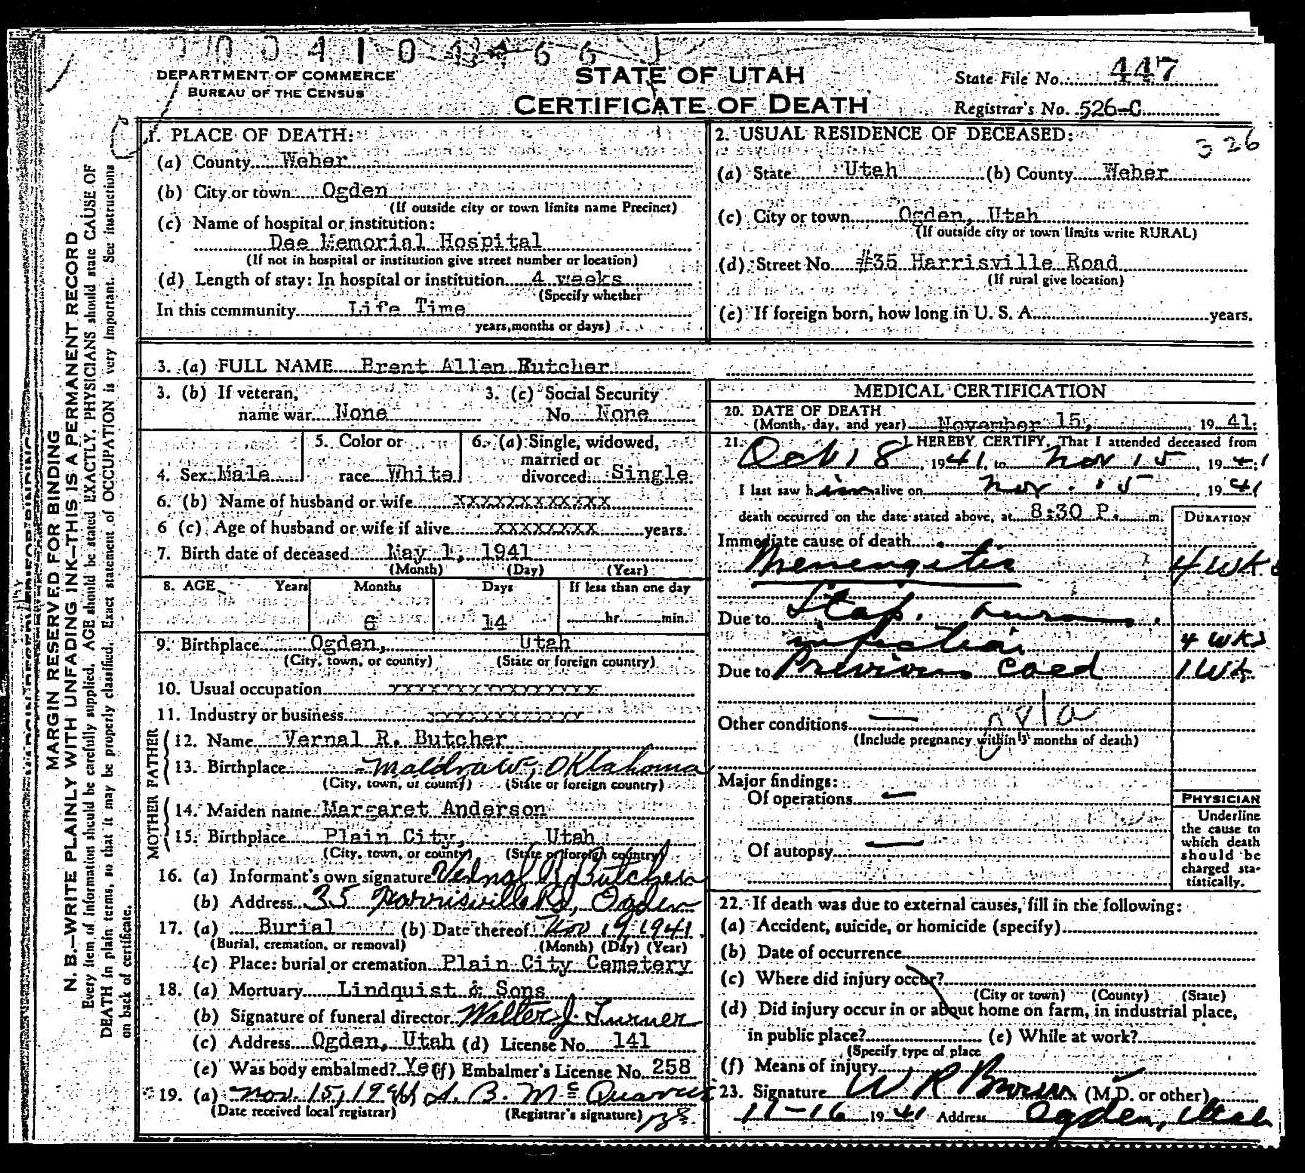 DEPARTMENT OF COMMERCE
BUREAU OF THE CENSUS
STATE OF UTAH
CERTIFICATE OF DEATH
State File No. 447
Registrar's No. 526-C
326
MARGIN RESERVED FOR BINDING
N. B.—WRITE PLAINLY WITH UNFADING INK—THIS IS A PERMANENT RECORD
Every item of information should be carefully supplied. AGE should be stated EXACTLY. PHYSICIANS should state CAUSE OF
DEATH in plain terms, so that it may be properly classified. Exact statement of OCCUPATION is very important. See instructions
on back of certificate.
1. PLACE OF DEATH:
(a) County Weber
(b) City or town Ogden
(If outside city or town limits name Precinct)
(c) Name of hospital or institution:
Dee Memorial Hospital
(If not in hospital or institution give street number or location)
(d) Length of stay: In hospital or institution 4 weeks
(Specify whether
In this community Life Time
years, months or days)
2. USUAL RESIDENCE OF DECEASED:
(a) State Utah (b) County Weber
(c) City or town Ogden, Utah
(If outside city or town limits write RURAL)
(d) Street No. #35 Harrisville Road
(If rural give location)
(e) If foreign born, how long in U. S. A. years.
3. (a) FULL NAME Brent Allen Butcher
3. (b) If veteran, 3. (c) Social Security
name war None No. None
5. Color or 6. (a) Single, widowed,
married or
4. Sex Male race White divorced Single
6. (b) Name of husband or wife XXXXXXXXXXXX
6 (c) Age of husband or wife if alive XXXXXXXX years.
7. Birth date of deceased May 1, 1941
(Month) (Day) (Year)
8. AGE Years Months Days If less than one day
6 14 hr. min.
9. Birthplace Ogden, Utah
(City, town, or county) (State or foreign country)
10. Usual occupation xxxxxxxxxxxxxxxx
11. Industry or business xxxxxxxxxxxx
FATHER
12. Name Vernal R. Butcher
13. Birthplace Maldraw, Oklahoma
(City, town, or county) (State or foreign country)
MOTHER
14. Maiden name Margaret Anderson
15. Birthplace Plain City, Utah
(City, town, or county) (State or foreign country)
16. (a) Informant's own signature Vernal R. Butcher
(b) Address 35 Harrisville Rd, Ogden
17. (a) Burial (b) Date thereof Nov 19 1941
(Burial, cremation, or removal) (Month) (Day) (Year)
(c) Place: burial or cremation Plain City Cemetery
18. (a) Mortuary Lindquist & Sons
(b) Signature of funeral director Walter J. Turner
(c) Address Ogden, Utah (d) License No. 141
(e) Was body embalmed? Yes (f) Embalmer's License No. 258
19. (a) Nov. 15, 1941
(Date received local registrar) (Registrar's signature)
MEDICAL CERTIFICATION
20. DATE OF DEATH
(Month, day, and year) November 15, 1941.
21. I HEREBY CERTIFY, That I attended deceased from
Oct 18, 1941, to Nov 15, 1941
I last saw him alive on Nov. 15 1941
death occurred on the date stated above, at 8:30 P. m. DURATION
Immediate cause of death
Menengitis 4 wks
Due to Stap. 
infection 4 wks
Due to Previous coed 1 wk
Other conditions —
(Include pregnancy within 3 months of death)
Major findings:
Of operations —
Of autopsy —
PHYSICIAN
Underline
the cause to
which death
should be
charged sta-
tistically.
22. If death was due to external causes, fill in the following:
(a) Accident, suicide, or homicide (specify)
(b) Date of occurrence
(c) Where did injury occur?
(City or town) (County) (State)
(d) Did injury occur in or about home on farm, in industrial place,
in public place? (e) While at work?
(Specify type of place
(f) Means of injury
23. Signature W R Brown (M.D. or other)
11-16 1941 Address Ogden, Utah